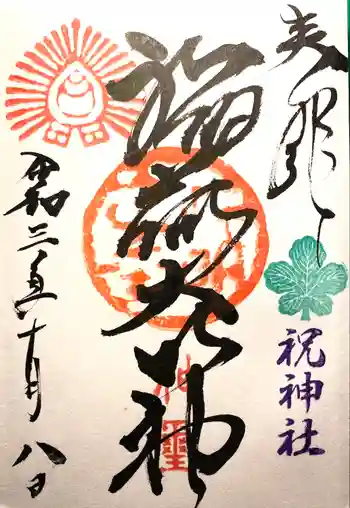 奉拝
祝神社
稲荷大神
令和三年十月八日